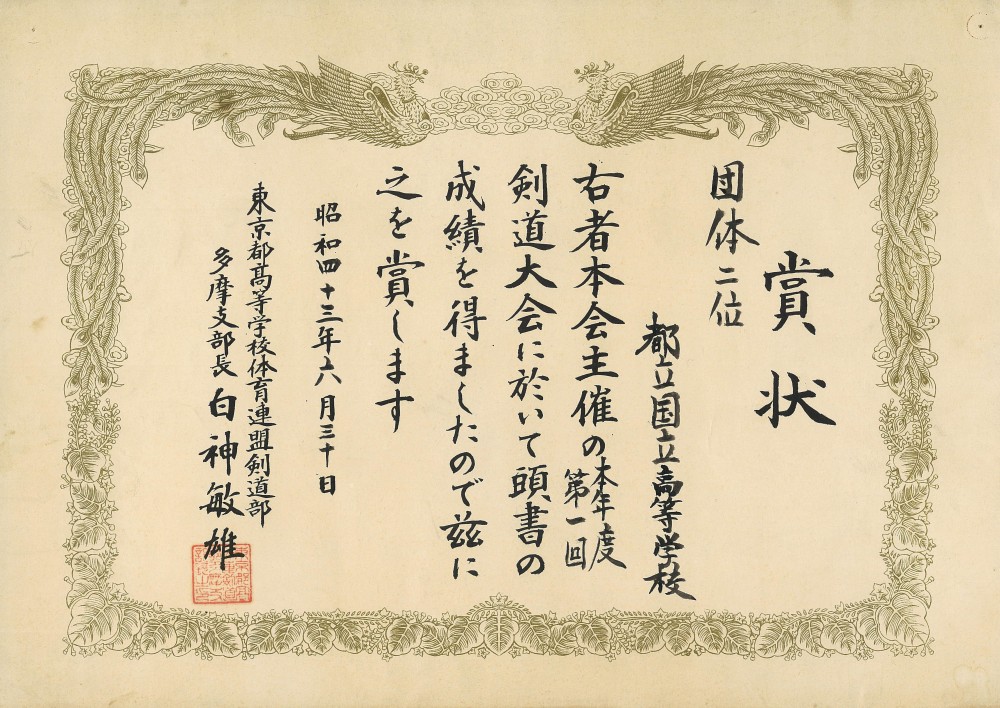 賞状
団体二位
都立国立高等学校
右者本会主催の本年度第一回
剣道大会に於いて頭書の
成績を得ましたので茲に
之を賞します
昭和四十三年六月三十日
東京都高等学校体育連盟剣道部
多摩支部長 白神敏雄